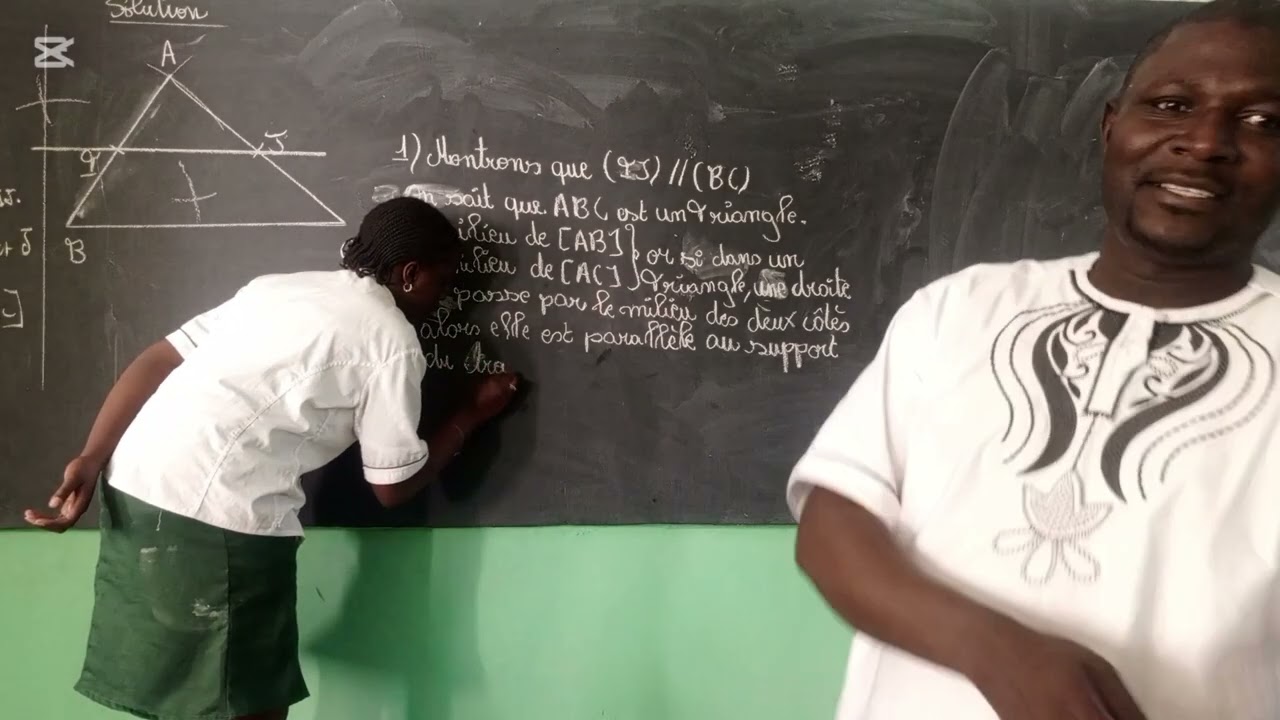 Solution
A
I J
B
1) Montrons que (IJ) // (BC)
On sait que ABC est un triangle.
milieu de [AB] } or si dans un
milieu de [AC] } triangle, une droite
passe par le milieu des deux côtés
alors elle est parallèle au support
du tro